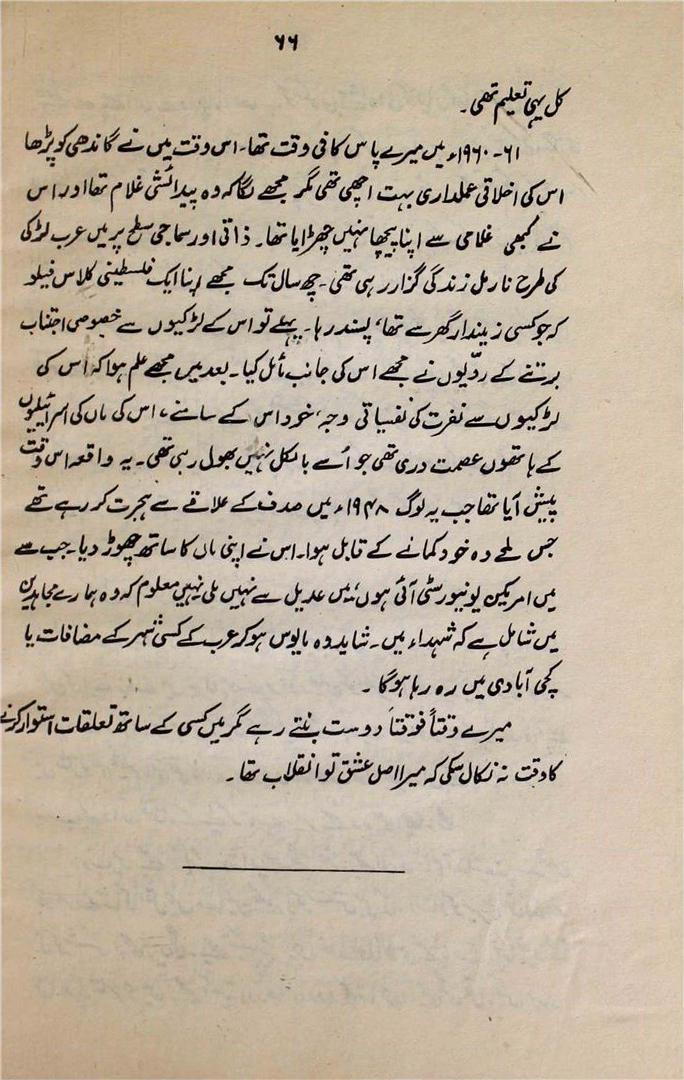 ۶۶
کل یہی تعلیم تھی۔
۶۱-۱۹۶۰ء میں میرے پاس کافی وقت تھا۔ اس وقت میں نے گاندھی کو پڑھا
اس کی اخلاقی عملداری بہت اچھی تھی مگر مجھے لگا کہ وہ پیدائشی غلام تھا اور اس
نے کبھی غلامی سے اپنا پیچھا نہیں چھڑایا تھا۔ ذاتی اور سماجی سطح پر میں عرب لڑکی
کی طرح نارمل زندگی گزار رہی تھی۔ چھ سال تک مجھے اپنا ایک فلسطینی کلاس فیلو
کہ جو کسی زمیندار گھر سے تھا، پسند رہا۔ پہلے تو اس کے لڑکیوں سے خصوصی اجتناب
برتنے کے ردّیوں نے مجھے اس کی جانب مائل کیا۔ بعد میں مجھے علم ہوا کہ اس کی
لڑکیوں سے نفرت کی نفسیاتی وجہ، خود اس کے سامنے، اس کی ماں کی اسرائیلیوں
کے ہاتھوں عصمت دری تھی جو اُسے بالکل نہیں بھول رہی تھی۔ یہ واقعہ اس وقت
پیش آیا تھا جب یہ لوگ ۱۹۴۸ء میں صدف کے علاقے سے ہجرت کر رہے تھے
جس لمحے وہ خود کمانے کے قابل ہوا۔ اس نے اپنی ماں کا ساتھ چھوڑ دیا۔ جب سے
میں امریکن یونیورسٹی آئی ہوں، میں عدیل سے نہیں ملی نہیں معلوم کہ وہ ہمارے مجاہدین
میں شامل ہے کہ شہداء میں۔ شاید وہ مایوس ہو کر عرب کے کسی شہر کے مضافات یا
کچی آبادی میں رہ رہا ہو گا۔
میرے وقتاً فوقتاً دوست بنتے رہے مگر میں کسی کے ساتھ تعلقات استوار کرنے
کا وقت نہ نکال سکی کہ میرا اصل عشق تو انقلاب تھا۔